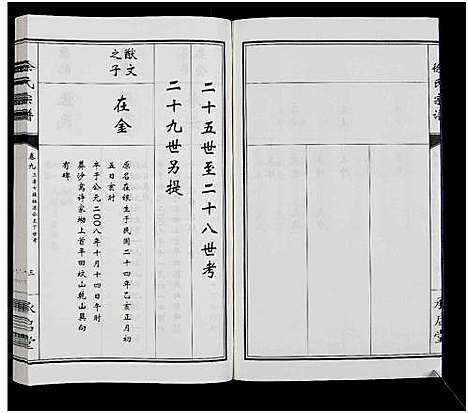 徐氏宗谱
承启堂
二十五世至二十八世考
二十九世另提
猷文之子
在金
原名在银生于民国二十四年乙亥正月初
五日亥时
卒于公元二00八年十月十四日午时
葬沙窝许家坳上首平田坟山乾山巽向
有碑
氏宗谱
卷九
三
承启堂